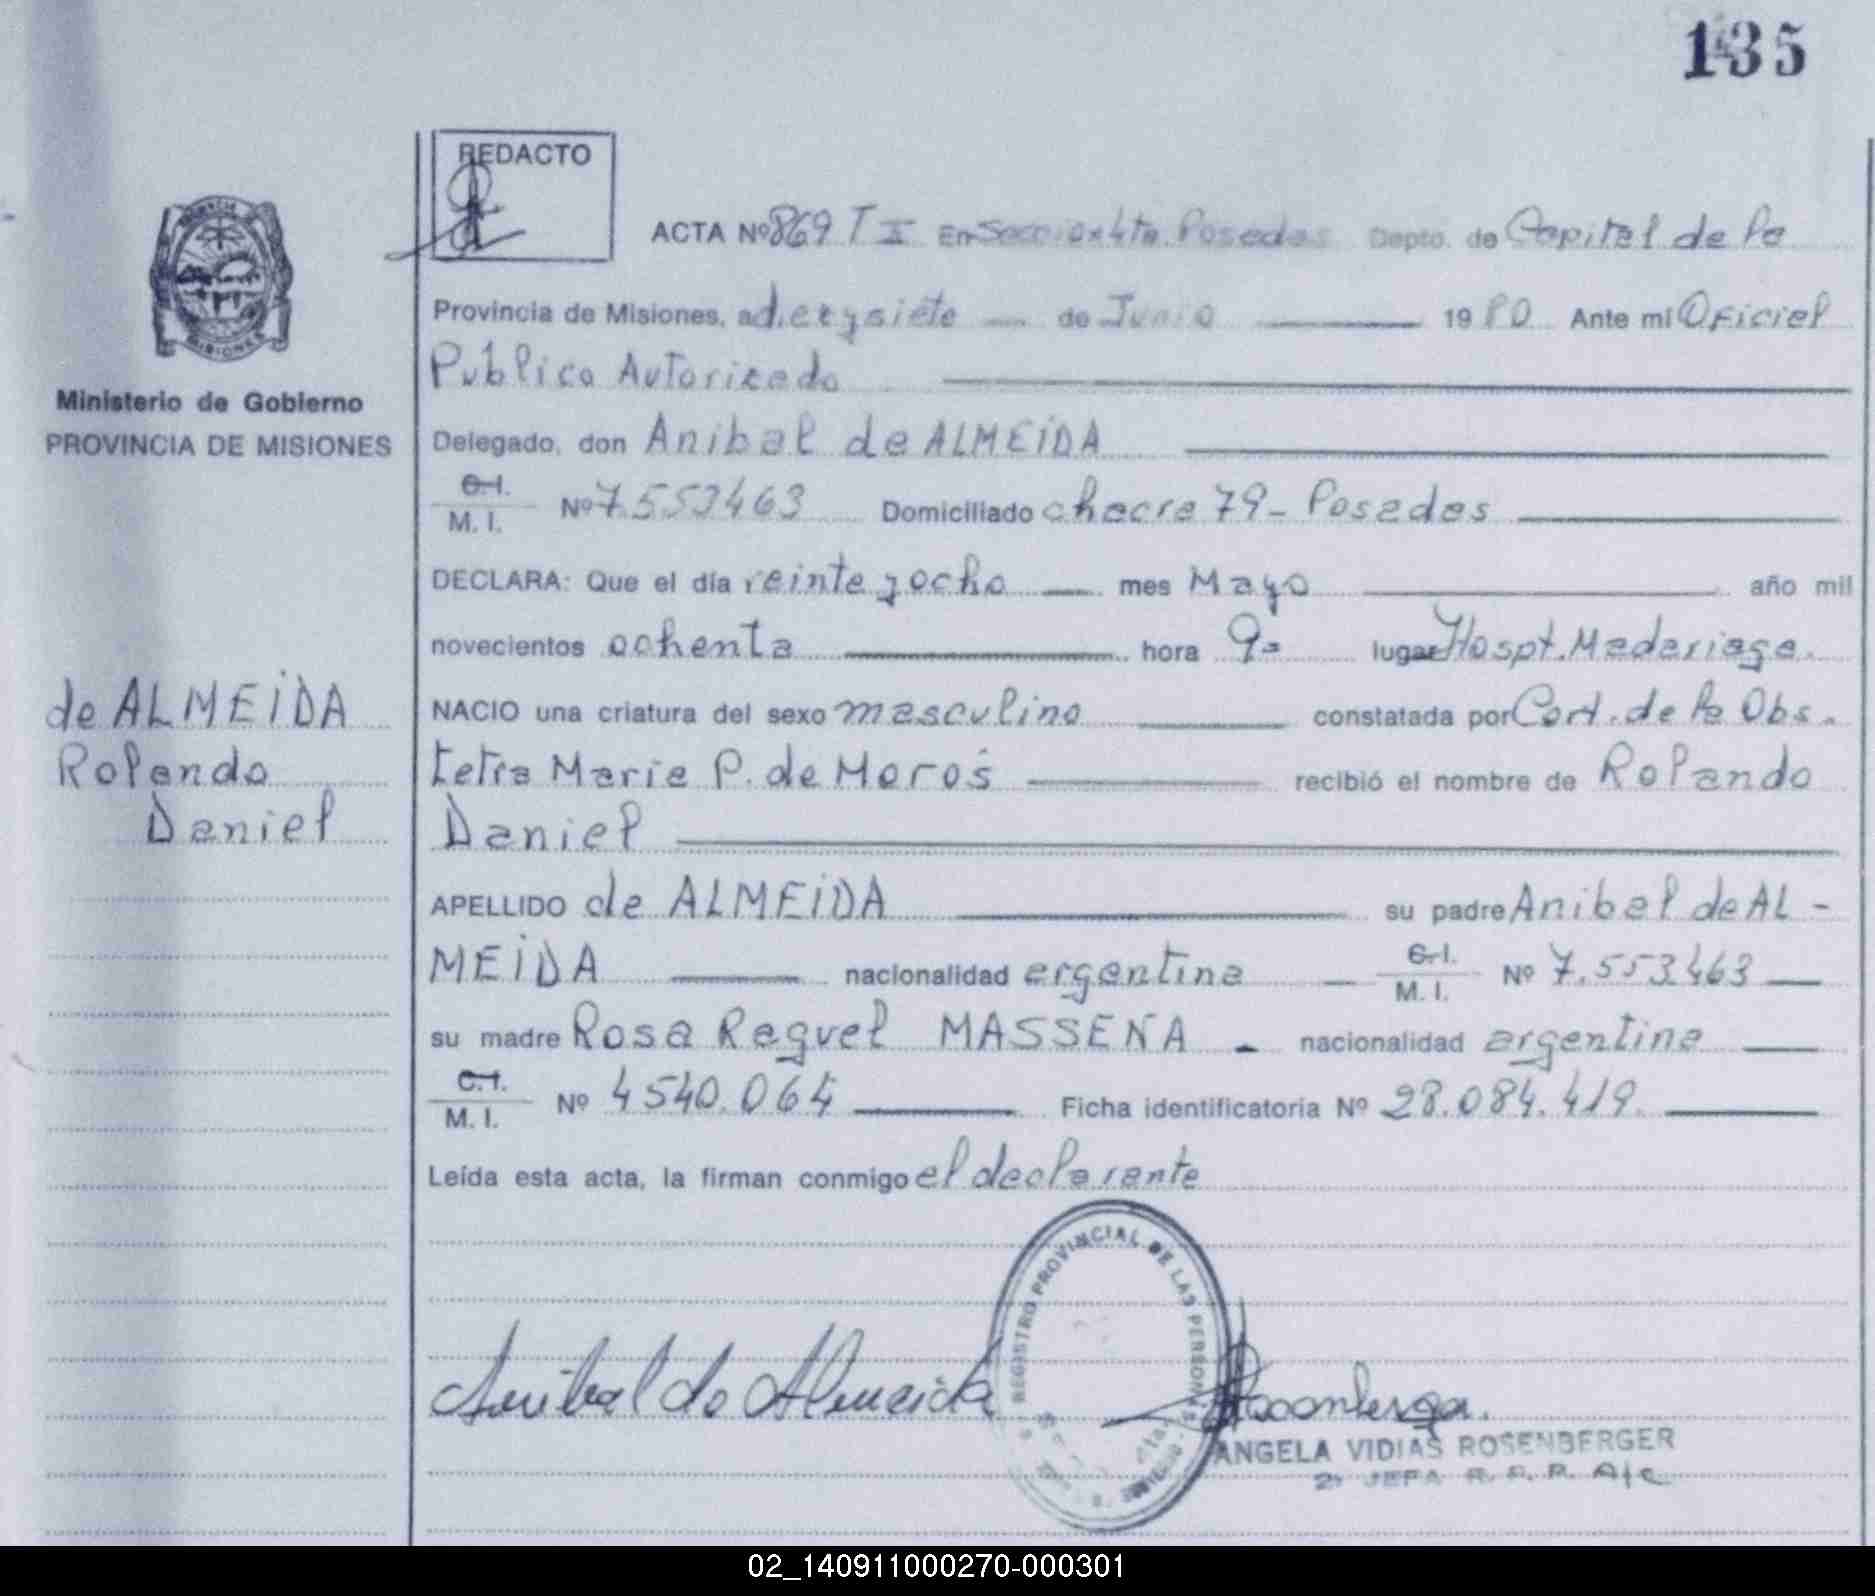 135
REDACTO
ACTA Nº 869 T II En Seccion 4ta Posadas Depto. de Capital de la
Provincia de Misiones, a diezysiete — de Junio — 1980 Ante mí Oficial
Publico Autorizado
Ministerio de Gobierno
PROVINCIA DE MISIONES
Delegado, don Anibal de ALMEIDA
C.I.
M. I. Nº 7.553463 Domiciliado chacra 79- Posadas
DECLARA: Que el día veinte y ocho — mes Mayo — año mil
novecientos ochenta — hora 9= lugar Hospt. Madariaga.
de ALMEIDA
Rolando
Daniel
NACIO una criatura del sexo masculino — constatada por Cert. de la Obs.
tetra Maria P. de Moros — recibió el nombre de Rolando
Daniel
APELLIDO de ALMEIDA — su padre Anibal de AL-
MEIDA — nacionalidad argentina — C.I. M. I. Nº 7.553463 —
su madre Rosa Raquel MASSENA - nacionalidad argentina —
C.I.
M. I. Nº 4540.064 — Ficha identificatoria Nº 28.084.419. —
Leída esta acta, la firman conmigo el declarante
REGISTRO PROVINCIAL DE LAS PERSONAS
Anibal de Almeida
ANGELA VIDIAS ROSENBERGER
2ª JEFA R. P. P. A/C
02_140911000270-000301